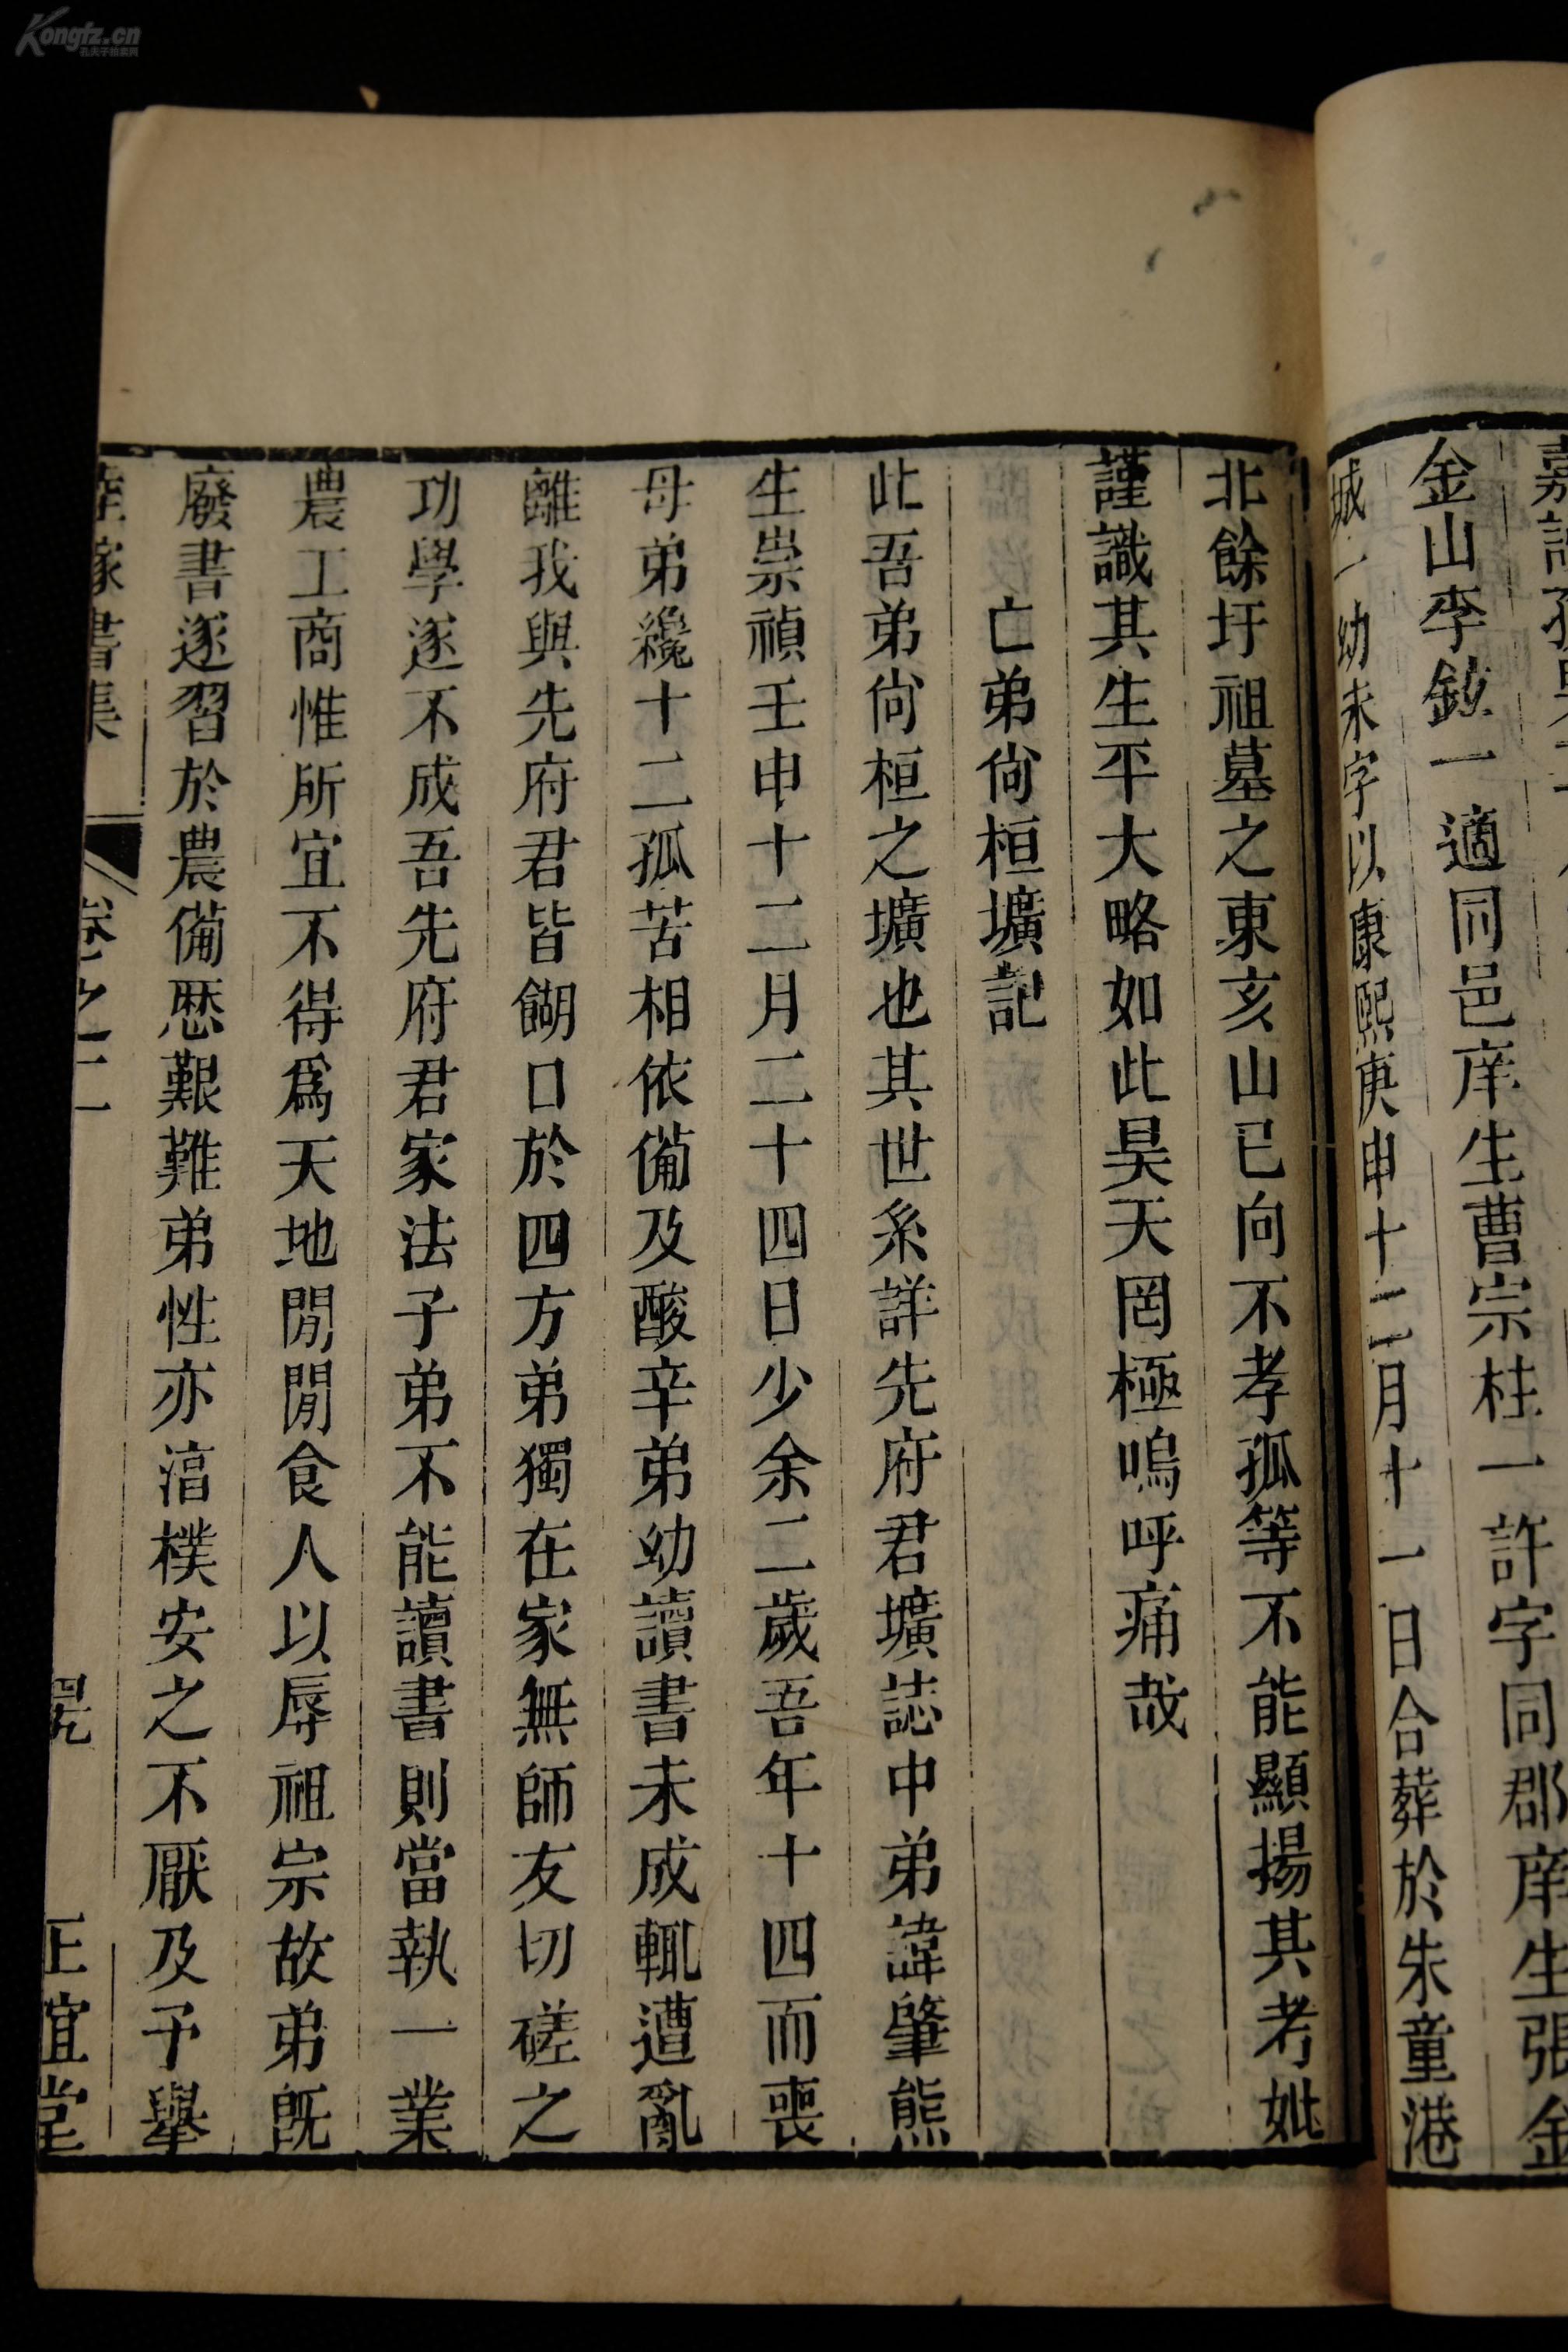 金山李欽一適同邑庠生曹宗桂一許字同郡庠生張金
城一幼未字以康熙庚申十二月十一日合葬於朱童港
北餘圩祖墓之東亥山巳向不孝孤等不能顯揚其考妣
謹識其生平大略如此昊天罔極嗚呼痛哉
亡弟尙桓壙記
此吾弟尙桓之壙也其世系詳先府君壙誌中弟諱肇熊
生崇禎壬申十二月二十四日少余二歲吾年十四而喪
母弟纔十二孤苦相依備及酸辛弟幼讀書未成輒遭亂
離我與先府君皆餬口於四方弟獨在家無師友切磋之
功學遂不成吾先府君家法子弟不能讀書則當執一業
農工商惟所宜不得爲天地閒閒食人以辱祖宗故弟旣
廢書遂習於農備歷艱難弟性亦湻樸安之不厭及予舉
書集
卷之二
正宜堂
Kongfz.cn